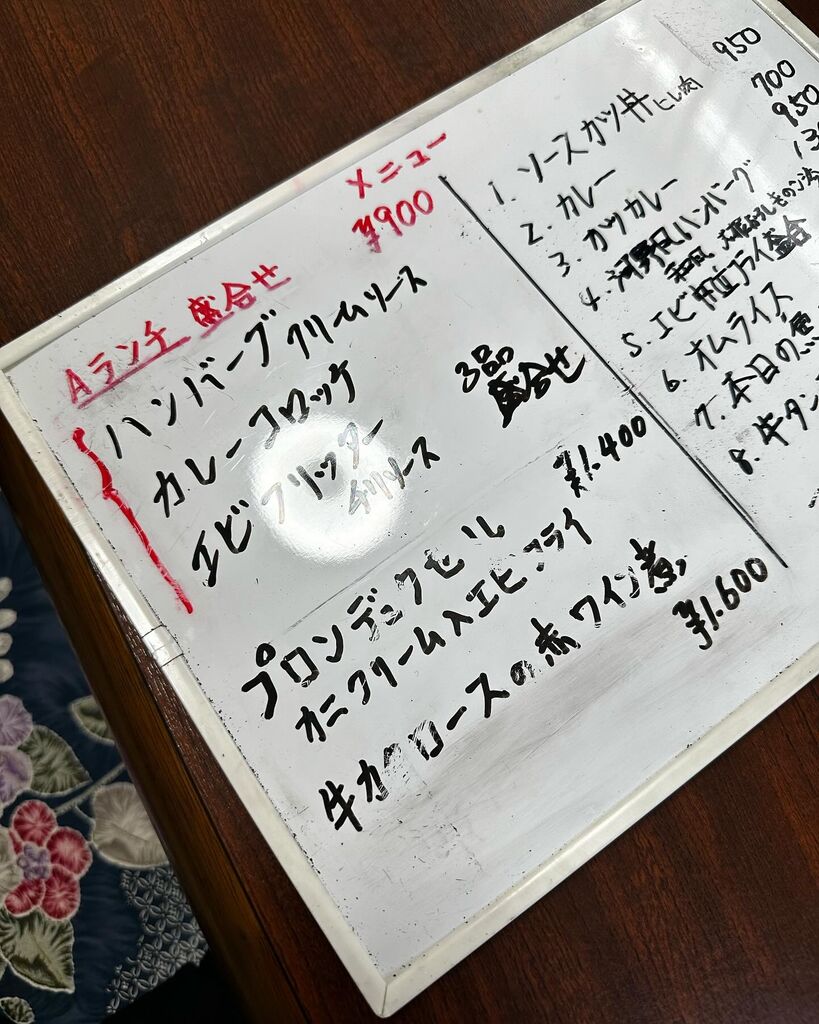 メニュー
Aランチ 盛合せ ¥900
ハンバーグ クリームソース
カレーコロッケ
エビフリッター
チリソース
3品
盛合せ
プロンデュクセル
カニクリーム入エビフライ
¥1.400
牛カタロースの赤ワイン煮
¥1.600
1. ソースカツ丼 ヒレ肉 950
2. カレー 700
3. カツカレー 950
4. 河野風ハンバーグ
和風 大根おろし
5. エビ フライ盛合
6. オムライス
7. 本日の魚
8. 牛タン